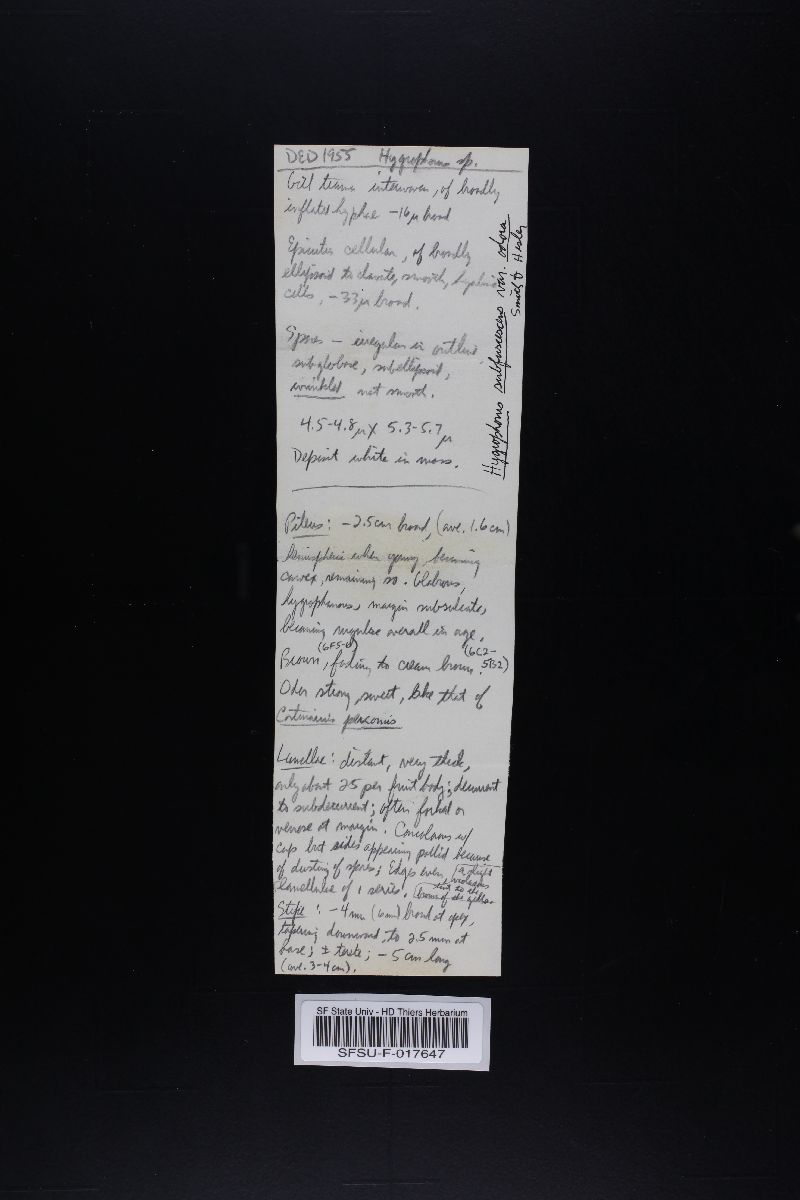 DED 1955 Hygrophorus sp.
Gill trama interwoven, of broadly
inflated hyphae -16 µ broad
Epicutis cellular, of broadly
ellipsoid to clavate, smooth, hyaline
cells, -33 µ broad.
Spores - irregular in outline,
subglobose, subellipsoid,
wrinkled not smooth.
4.5-4.8 µ X 5.3-5.7 µ
Deposit white in mass.
Hygrophorus subfuscescens var. odora
Smith & Hesler
Pileus: -2.5cm broad, (ave. 1.6cm)
hemispheric when young, becoming
convex, remaining so. Glabrous,
hygrophanous, margin subsulcate,
becoming rugulose overall in age.
(6F5-6) (6C2-
Brown, fading to cream brown. 5B2)
Odor strong, sweet, like that of
Cortinarius percomis
Lamellae: distant, very thick,
only about 25 per fruit body; decurrent
to subdecurrent; often forked or
venose at margin. Concolorous w/
cap but sides appearing pallid because
of dusting of spores; Edges even, a slight
violaceous
tint to the
lamellulae of 1 series. brown of the gills.
Stipe: -4mm (6mm) broad at apex,
tapering downward to 2.5 mm at
base; ± terete; -5cm long
(ave. 3-4cm).
SF State Univ - HD Thiers Herbarium
SFSU-F-017647